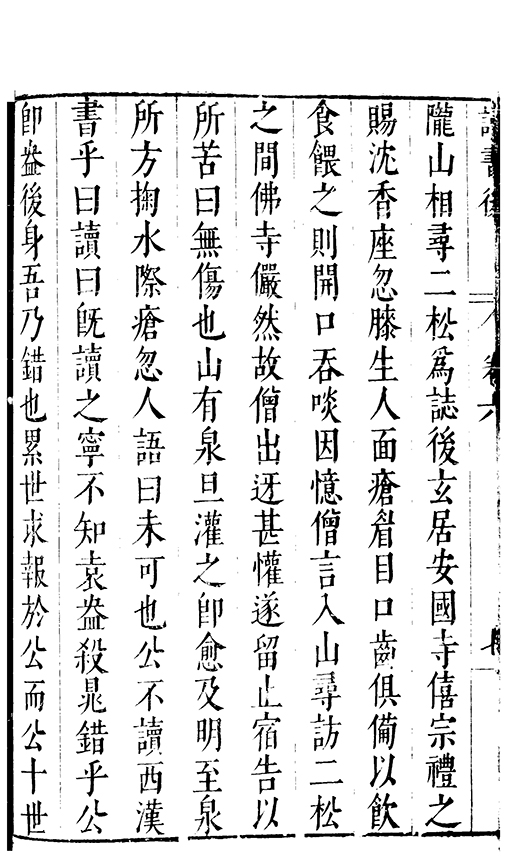 讀書後 卷六 七
隴山相尋二松爲誌後玄居安國寺僖宗禮之
賜沈香座忽膝生人面瘡眉目口齒俱備以飲
食餵之則開口吞啖因憶僧言入山尋訪二松
之間佛寺儼然故僧出迓甚懽遂留止宿告以
所苦曰無傷也山有泉旦灌之卽愈及明至泉
所方掬水際瘡忽人語曰未可也公不讀西漢
書乎曰讀曰旣讀之寧不知袁盎殺晁錯乎公
卽盎後身吾乃錯也累世求報於公而公十世